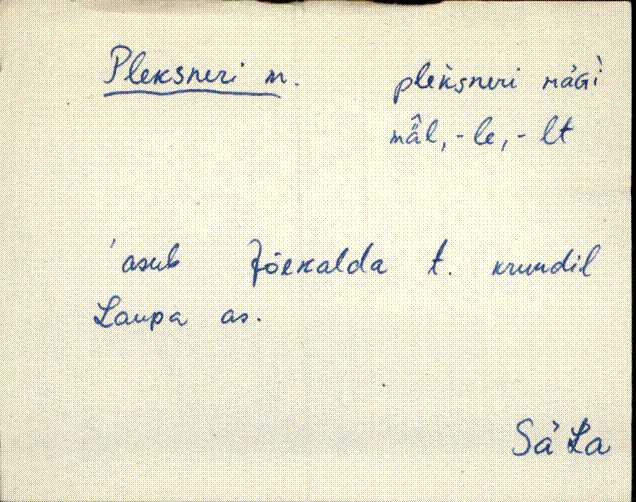 Pleksneri m. pleksneri mäGi
mäl, -le, - lt
'asub Jõekalda t. krundil
Laupa as.
Sä La